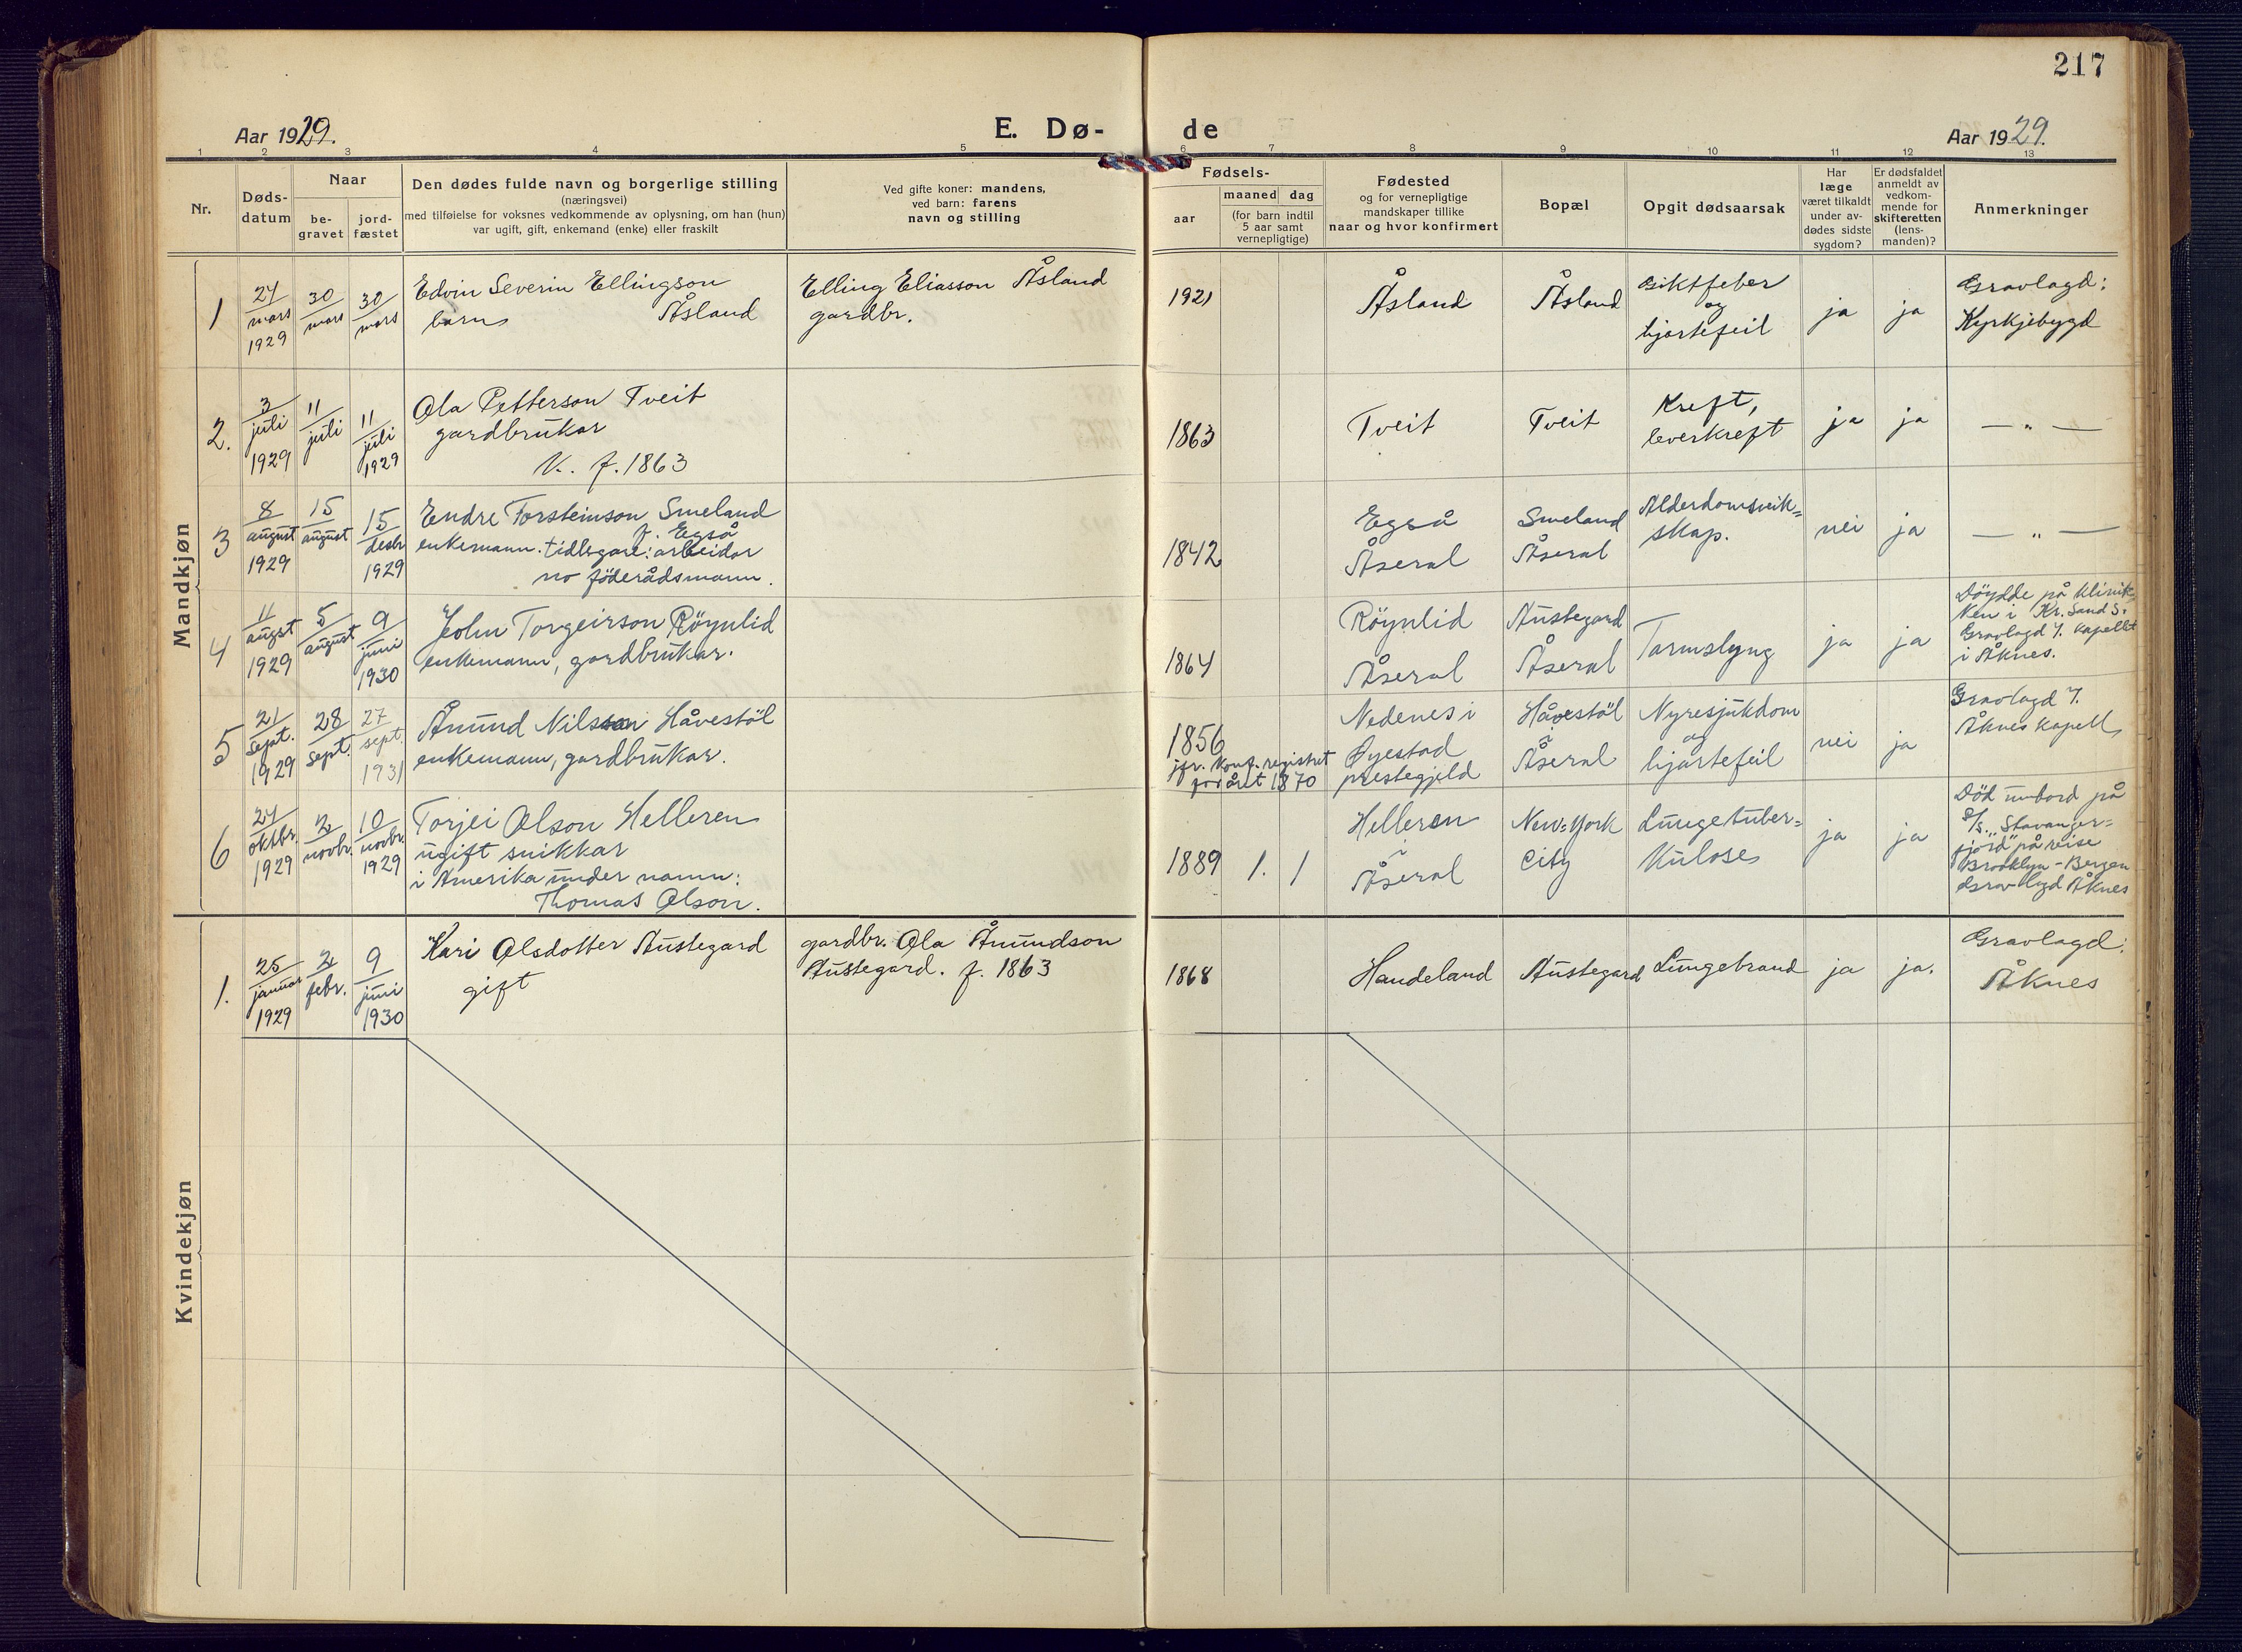 217
Aar 1929.
E. Dø-
de
Aar 1929.
1 2 3 4 5 6 7 8 9 10 11 12 13
Nr.
Døds-
datum
Naar
be-
gravet
jord-
fæstet
Den dødes fulde navn og borgerlige stilling
(næringsvei)
med tilføielse for voksnes vedkommende av oplysning, om han (hun)
var ugift, gift, enkemand (enke) eller fraskilt
Ved gifte koner: mandens,
ved barn: farens
navn og stilling
Fødsels-
aar
maaned dag
(for barn indtil
5 aar samt
vernepligtige)
Fødested
og for vernepligtige
mandskaper tillike
naar og hvor konfirmert
Bopæl
Opgit dødsaarsak
Har
læge
været tilkaldt
under av-
dødes sidste
sygdom?
Er dødsfaldet
anmeldt av
vedkom-
mende for
skifteretten
(lens-
manden)?
Anmerkninger
Mandkjøn
1
24
mars
1929
30
mars
30
mars
Edvin Severin Ellingson
barn Åsland
Elling Eliasson Åsland
gardbr.
1921
Åsland
Åsland
Giktfeber
og
hjartefeil
ja
ja
Gravlagd:
Kyrkjebygd
2.
3
juli
1929
11
juli
11
juli
1929
Ola Petterson Tveit
gardbrukar
V. f. 1863
1863
Tveit
Tveit
Kreft,
leverkreft
ja
ja
— " —
3
8
august
1929
15
august
15
desbr
1929
Endre Torsteinson Smeland
f. Egså
enkemann. tidlegare: arbeidar
no föderådsmann.
1842
Egså
Åseral
Smeland
Åseral
Alderdomsveik=
skap.
nei
ja
— " —
4
11
augst
1929
5
august
9
juni
1930
John Torgeirson Röynlid
enkemann, gardbrukar.
1864
Röynlid
Åseral
Austegard
Åseral
Tarmslyng
ja
ja
Döydde på klinik=
ken i Kr.sand S.
Gravlagd v. kapellet
i Åknes.
5
21
sept.
1929
28
sept.
27
sept.
1931
Åmund Nilsson Håvestöl
enkemann, gardbrukar.
1856
jfr. konf. registret
for året 1870
Nedenes i
Øyestad
prestegjeld
Håvestöl
i
Åseral
Nyresjukdom
og
hjartefeil
nei
ja
Gravlagd v.
Åknes kapell
6
24
oktbr.
1929
2
novbr.
10
novbr.
1929
Torjei Olson Helleren
ugift snikkar
i Amerika under namn:
Thomas Olson.
1889 1. 1
Helleren
i
Åseral
New=York
City
Lungetuber=
kulose
ja
ja
Död umbord på
S/s. „Stavanger=
fjord" på reise
Brooklyn - Bergen
Gravlagd Åknes
Kvindekjøn
1.
25
januar
1929
2
febr.
9
juni
1930
Kari Olsdotter Austegard
gift
gardbr. Ola Åmundson
Austegard. f. 1863
1868
Handeland
Austegard
Lungebrand
ja
ja.
Gravlagd:
Åknes